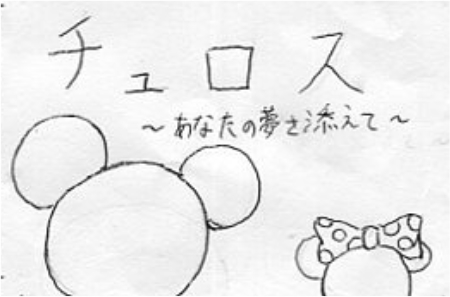 チュロス
～あなたの夢を添えて～